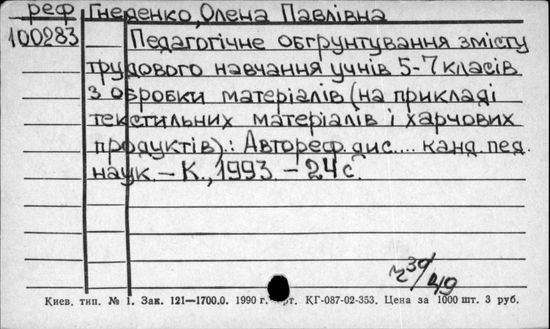 реф Гнеденко, Олена Павлівна
100283 Педагогічне обгрунтування змісту
трудового навчання учнів 5-7 класів
з обробки матеріалів (на прикладі
текстильних матеріалів і харчових
продуктів).: Автореф. дис.... канд. пед.
наук. – К., 1993. – 24 с.
Киев. тип. № 1. Зак. 121—1700.0. 1990 г. КГ-087-02-353. Цена за 1000 шт. 3 руб.